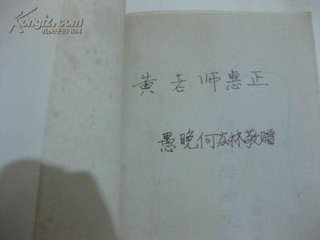 Kongfz.com
孔夫子旧书网
黄老师惠正
愚晚何友林敬赠